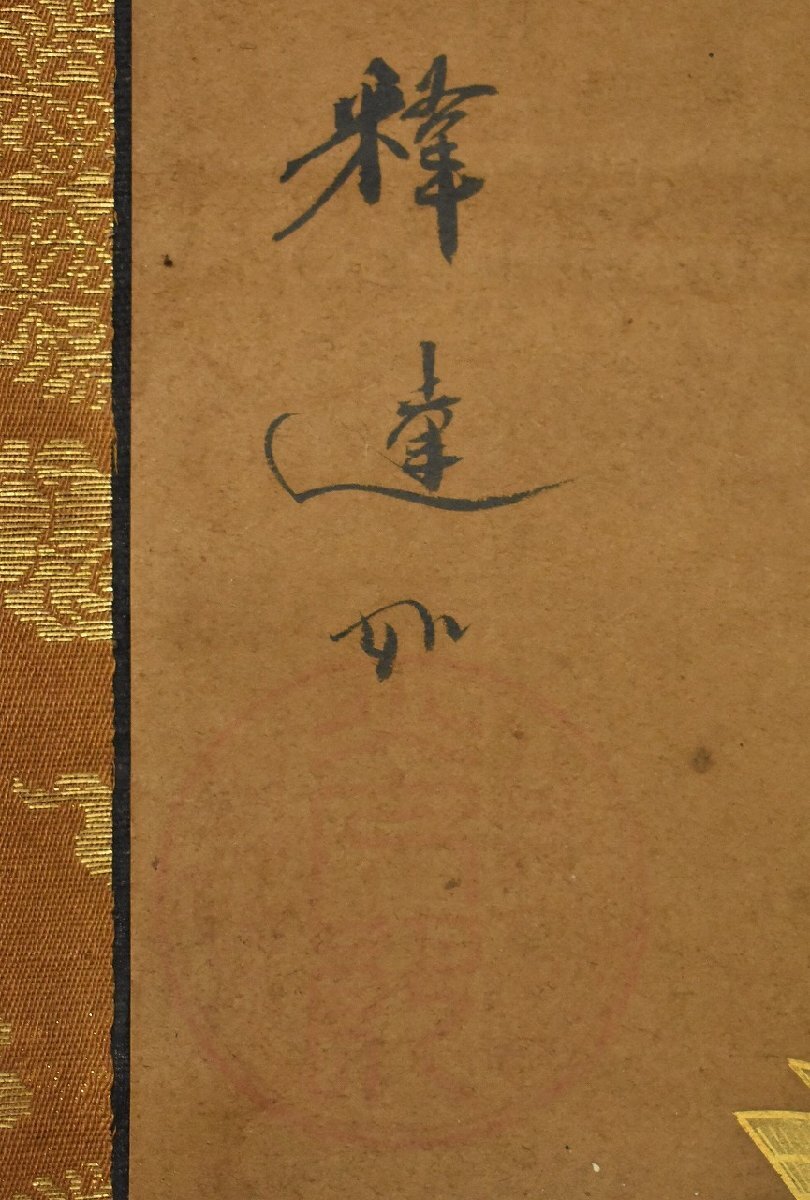 釋達如